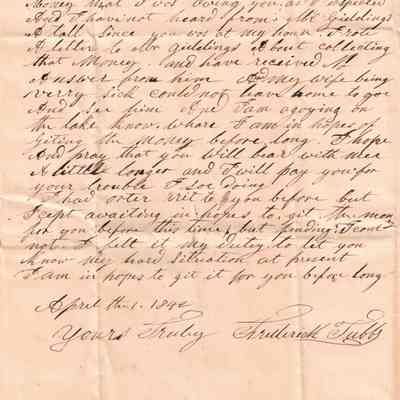 Money that I was owing you, as I expected
And I have not heard from Mr Giddings
Atall Since you was at my house I rote
A letter to Mr giddings About collecting
that Money. and have received No
Answer from him And my wife being
verry Sick could not leave home to goe
And See him And I am agoying on
the lake know, whare I am in hopes of
Giting the Money before long. I hope
And pray that you Will bear with mee
A little longer and I will pay you for
your trouble I soe doing
I had orter writ to you before but
I cept awaiting in hopes to git the mon
for you before this time, but finding I coul
not I felt it my duty to let you
know my hard Situation at present
I am in hopes to git it for you before long
April th 1. 1844
Yours Truly Frederick Tubbs